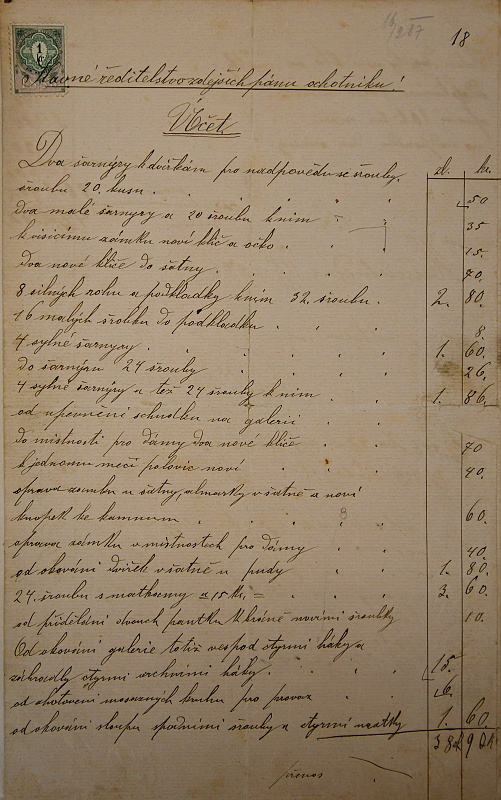 18
1
Slavné ředitelstvo zdejších pánu ochotniku!
Účet
zl. kr.
Dva šarnýry k dvířkám pro nadpovědu se šrouby.
šroubu 20, kusu. 50
Dva malé šarnyry a 20 šroubu k nim 35
k visicímu zámku noví klíč a očko. 15.
Dva nové klíče do šatny. 40.
8 silných rohu a podkladky k nim 32. šroubu. 2. 80.
16 malých šroubku do podkladku 8
4 sylné šarnyry. 1. 60.
do šarnýru 24 šrouby 26.
4 sylné šarnýry a též 24 šrouby k nim 1. 86.
od upevnění schudku na galerii
Do místnosti pro dámy dva nové klíče 70
k jednomu meči polovic noví 40.
oprava zámku u šatny, almarky v šatně a noví
knopek ke kamnum 60.
oprava zámku v místnostech pro dámy 40.
od okování dvířek v šatně u pudy 1. 80.
24. šroubu s matkamy a 15 kr. = 3. 60.
od přidělání dvouch pantku k bráně novími šroubky 10.
Od okování galerie totiž vespod čtyrmi háky a
zábradly čtyrmi vrchními háky. 15.
od zhotovení mosazných kruhu pro provaz 6.
od okování sloupu spodními šrouby a čtyrmi matky 1. 60.
38 zl 90 kr.
přenos